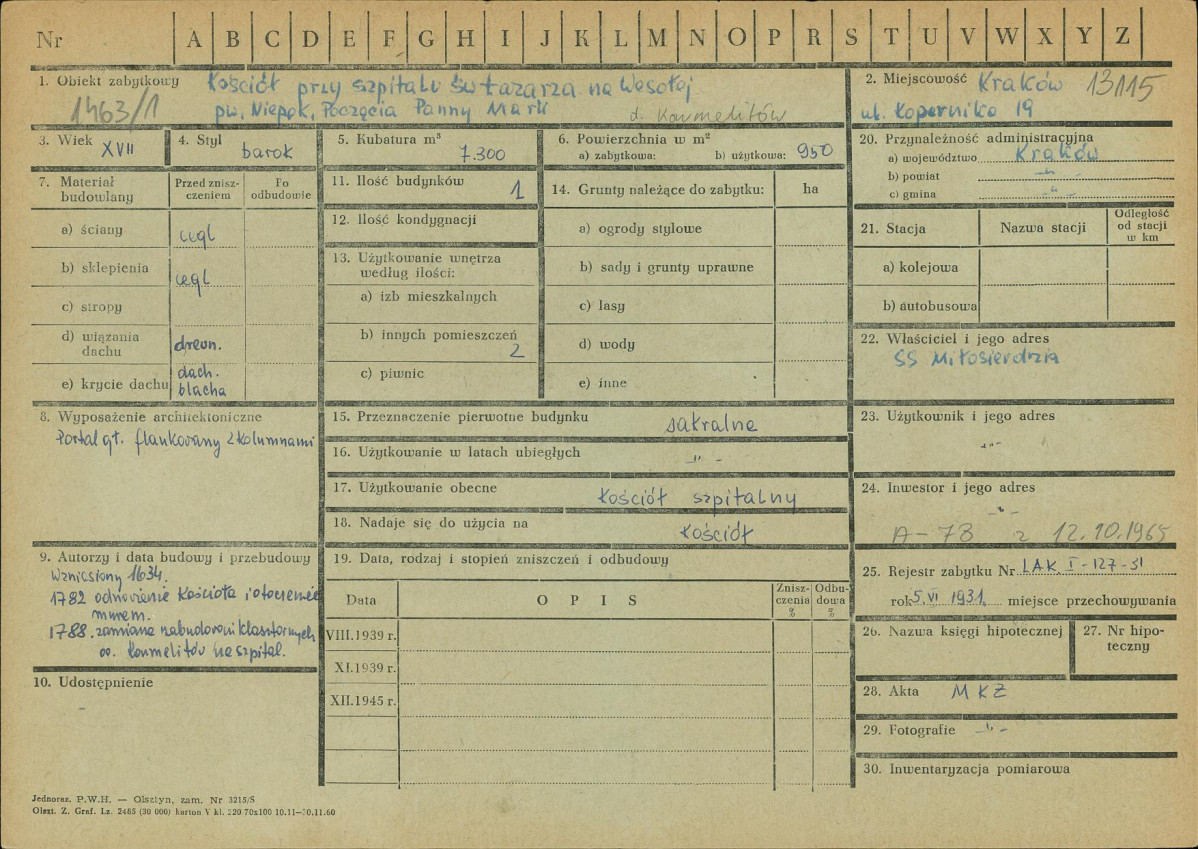 Nr A B C D E F G H I J K L M N O P R S T U V W X Y Z
1. Obiekt zabytkowy Kościół przy szpitalu św Łazarza na Wesołej
1463/1 pw. Niepok. Poczęcia Panny Marii
d. Karmelitów
2. Miejscowość Kraków 13115
ul. Kopernika 19
3. Wiek XVII
4. Styl barok
5. Kubatura m³
7.300
6. Powierzchnia w m²
a) zabytkowa: b) użytkowa: 950
20. Przynależność administracyjna
a) województwo Kraków
b) powiat -"-
c) gmina -"-
7. Materiał budowlany
Przed zniszczeniem
Po odbudowie
a) ściany cegl
b) sklepienia cegl
c) stropy
d) wiązania dachu drewn.
e) krycie dachu dach. blacha
11. Ilość budynków 1
12. Ilość kondygnacji
13. Użytkowanie wnętrza
według ilości:
a) izb mieszkalnych
b) innych pomieszczeń
2
c) piwnic
14. Grunty należące do zabytku: ha
a) ogrody stylowe
b) sady i grunty uprawne
c) lasy
d) wody
e) inne
21. Stacja Nazwa stacji
Odległość
od stacji
w km
a) kolejowa
b) autobusowa
22. Właściciel i jego adres
SS Miłosierdzia
8. Wyposażenie architektoniczne
Portal gł. flankowany 2 kolumnami
15. Przeznaczenie pierwotne budynku sakralne
16. Użytkowanie w latach ubiegłych -"-
17. Użytkowanie obecne kościół szpitalny
18. Nadaje się do użycia na kościół
23. Użytkownik i jego adres
-"-
24. Inwestor i jego adres
-"-
A-78 z 12.10.1965
9. Autorzy i data budowy i przebudowy
Wzniesiony 1634.
1782 odnowienie Kościoła i otoczenie
murem.
1788. zamiana zabudowań klasztornych
oo. Karmelitów na szpital.
19. Data, rodzaj i stopień zniszczeń i odbudowy
Data O P I S
Zniszczenia %
Odbudowa %
VIII.1939 r.
XI.1939 r.
XII.1945 r.
25. Rejestr zabytku Nr LAK I-127-31
rok 5.VI 1931. miejsce przechowywania
26. Nazwa księgi hipotecznej
27. Nr hipoteczny
10. Udostępnienie
-
28. Akta MKZ
29. Fotografie -"-
30. Inwentaryzacja pomiarowa
Jednoraz. P.W.H. — Olsztyn, zam. Nr 3215/S
Olszt. Z. Graf. Lz. 2465 (30 000) karton V kl. 220 70x100 10.11—30.11.60